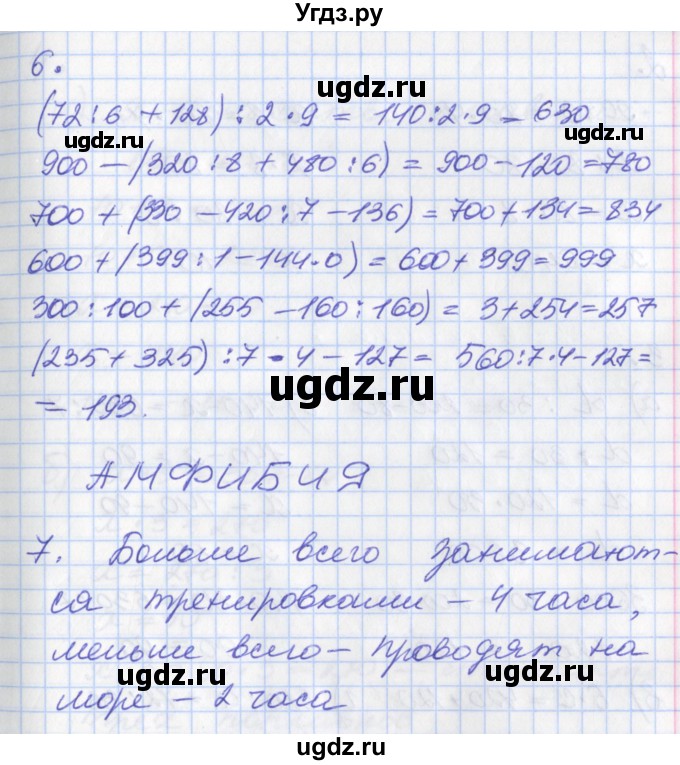 Угдз.ру
6.
(72:6 + 128) : 2 · 9 = 140:2·9 = 630
900 - (320 : 8 + 480 : 6) = 900 - 120 = 780
700 + (330 - 420 : 7 - 136) = 700 + 134 = 834
600 + (399 : 1 - 144·0) = 600 + 399 = 999
300 : 100 + (255 - 160 : 160) = 3 + 254 = 257
(235 + 325) : 7 · 4 - 127 = 560:7·4-127 =
= 193.
АМФИБИЯ
7. Больше всего занимают-
ся тренировками – 4 часа,
меньше всего – проводят на
море – 2 часа
ugdz.ru
ugdz.ru
ugdz.ru
ugdz.ru
ugdz.ru
ugdz.ru
ugdz.ru
ugdz.ru
ugdz.ru
ugdz.ru